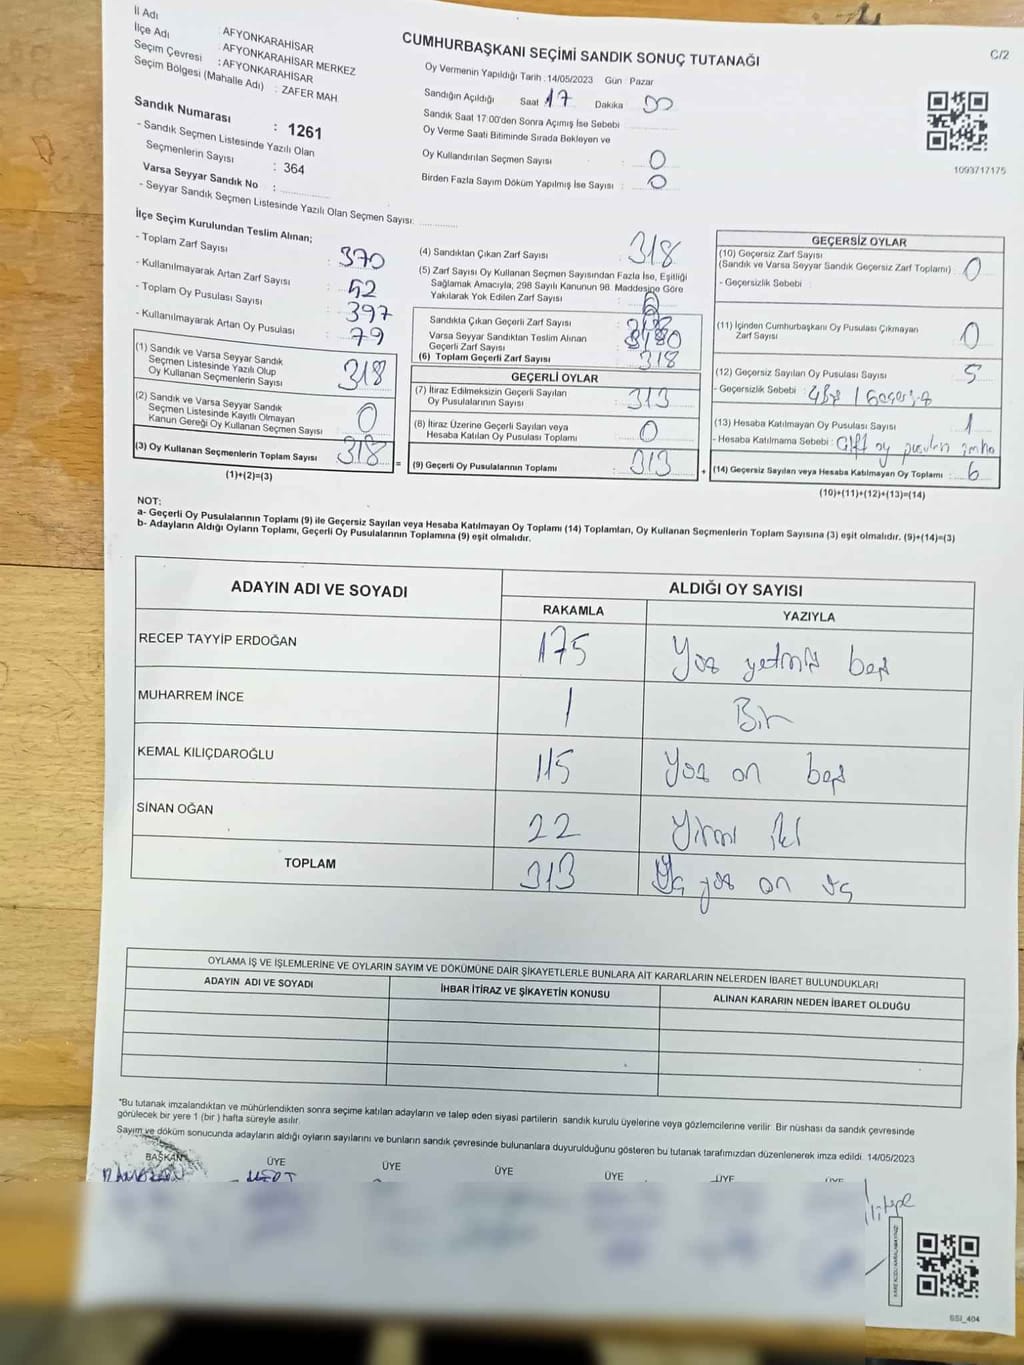 İl Adı : AFYONKARAHİSAR
İlçe Adı : AFYONKARAHİSAR MERKEZ
Seçim Çevresi : AFYONKARAHİSAR
Seçim Bölgesi (Mahalle Adı) : ZAFER MAH.
CUMHURBAŞKANI SEÇİMİ SANDIK SONUÇ TUTANAĞI
C/2
Oy Vermenin Yapıldığı Tarih : 14/05/2023 Gün : Pazar
Sandığın Açıldığı Saat 17 Dakika 00
Sandık Saat 17:00'den Sonra Açımış İse Sebebi
Oy Verme Saati Bitiminde Sırada Bekleyen ve
Oy Kullandırılan Seçmen Sayısı : 0
Birden Fazla Sayım Döküm Yapılmış İse Sayısı : 0
1093717175
Sandık Numarası : 1261
- Sandık Seçmen Listesinde Yazılı Olan
Seçmenlerin Sayısı : 364
Varsa Seyyar Sandık No :
- Seyyar Sandık Seçmen Listesinde Yazılı Olan Seçmen Sayısı:
İlçe Seçim Kurulundan Teslim Alınan;
- Toplam Zarf Sayısı : 370
- Kullanılmayarak Artan Zarf Sayısı : 52
- Toplam Oy Pusulası Sayısı : 397
- Kullanılmayarak Artan Oy Pusulası : 79
(1) Sandık ve Varsa Seyyar Sandık
Seçmen Listesinde Yazılı Olup
Oy Kullanan Seçmenlerin Sayısı : 318
(2) Sandık ve Varsa Seyyar Sandık
Seçmen Listesinde Kayıtlı Olmayan
Kanun Gereği Oy Kullanan Seçmen Sayısı : 0
(3) Oy Kullanan Seçmenlerin Toplam Sayısı : 318
(1)+(2)=(3)
=
(4) Sandıktan Çıkan Zarf Sayısı : 318
(5) Zarf Sayısı Oy Kullanan Seçmen Sayısından Fazla İse, Eşitliği
Sağlamak Amacıyla; 298 Sayılı Kanunun 98. Maddesine Göre
Yakılarak Yok Edilen Zarf Sayısı : 0
Sandıkta Çıkan Geçerli Zarf Sayısı :
Varsa Seyyar Sandıktan Teslim Alınan
Geçerli Zarf Sayısı :
(6) Toplam Geçerli Zarf Sayısı : 318
GEÇERLİ OYLAR
(7) İtiraz Edilmeksizin Geçerli Sayılan
Oy Pusulalarının Sayısı : 313
(8) İtiraz Üzerine Geçerli Sayılan veya
Hesaba Katılan Oy Pusulası Toplamı : 0
(9) Geçerli Oy Pusulalarının Toplamı : 313
+
GEÇERSİZ OYLAR
(10) Geçersiz Zarf Sayısı
(Sandık ve Varsa Seyyar Sandık Geçersiz Zarf Toplamı) : 0
- Geçersizlik Sebebi
(11) İçinden Cumhurbaşkanı Oy Pusulası Çıkmayan
Zarf Sayısı : 0
(12) Geçersiz Sayılan Oy Pusulası Sayısı : 5
- Geçersizlik Sebebi :
(13) Hesaba Katılmayan Oy Pusulası Sayısı : 1
- Hesaba Katılmama Sebebi : Çift oy pusulası imha
(14) Geçersiz Sayılan veya Hesaba Katılmayan Oy Toplamı : 6
(10)+(11)+(12)+(13)=(14)
NOT:
a- Geçerli Oy Pusulalarının Toplamı (9) ile Geçersiz Sayılan veya Hesaba Katılmayan Oy Toplamı (14) Toplamları, Oy Kullanan Seçmenlerin Toplam Sayısına (3) eşit olmalıdır. (9)+(14)=(3)
b- Adayların Aldığı Oyların Toplamı, Geçerli Oy Pusulalarının Toplamına (9) eşit olmalıdır.
ADAYIN ADI VE SOYADI
ALDIĞI OY SAYISI
RAKAMLA YAZIYLA
RECEP TAYYİP ERDOĞAN 175 Yüz yetmiş beş
MUHARREM İNCE 1 Bir
KEMAL KILIÇDAROĞLU 115 Yüz on beş
SİNAN OĞAN 22 Yirmi iki
TOPLAM 313 Üç yüz on üç
OYLAMA İŞ VE İŞLEMLERİNE VE OYLARIN SAYIM VE DÖKÜMÜNE DAİR ŞİKAYETLERLE BUNLARA AİT KARARLARIN NELERDEN İBARET BULUNDUKLARI
ADAYIN ADI VE SOYADI İHBAR İTİRAZ VE ŞİKAYETİN KONUSU ALINAN KARARIN NEDEN İBARET OLDUĞU
*Bu tutanak imzalandıktan ve mühürlendikten sonra seçime katılan adayların ve talep eden siyasi partilerin sandık kurulu üyelerine veya gözlemcilerine verilir. Bir nüshası da sandık çevresinde
görülecek bir yere 1 (bir) hafta süreyle asılır.
Sayım ve döküm sonucunda adayların aldığı oyların sayılarını ve bunların sandık çevresinde bulunanlara duyurulduğunu gösteren bu tutanak tarafımızdan düzenlenerek imza edildi. 14/05/2023
BAŞKAN ÜYE ÜYE ÜYE ÜYE ÜYE ÜYE
SSI_404